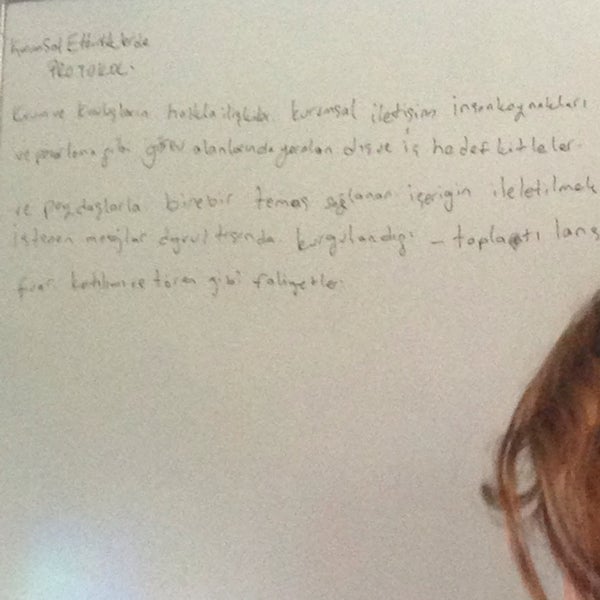 Kurumsal Etkinliklerde
PROTOKOL.
Kurum ve Kuruluşların halkla ilişkiler kurumsal iletişim insan kaynakları
ve pazarlama gibi görev alanlarında yer alan dış ve iç hedef kitleler
ve paydaşlarla birebir temas sağlanan içeriğin iletilmek
istenen mesajlar doğrultusunda kurgulandığı - toplantı lans
fuar katılımı ve tören gibi faliyetler.